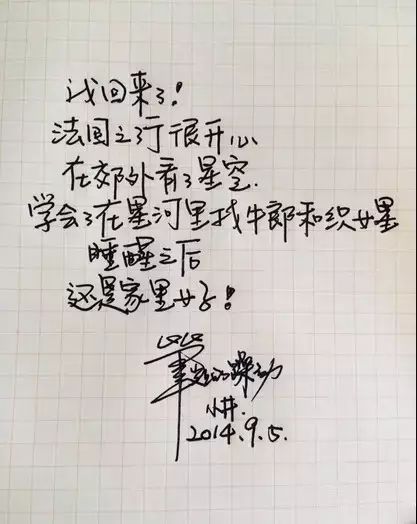 我回来了!
法国之行很开心
在郊外看了星空.
学会了在星河里找牛郎和织女星
睡醒之后
还是家里好!
的躁动
小井.
2014.9.5.